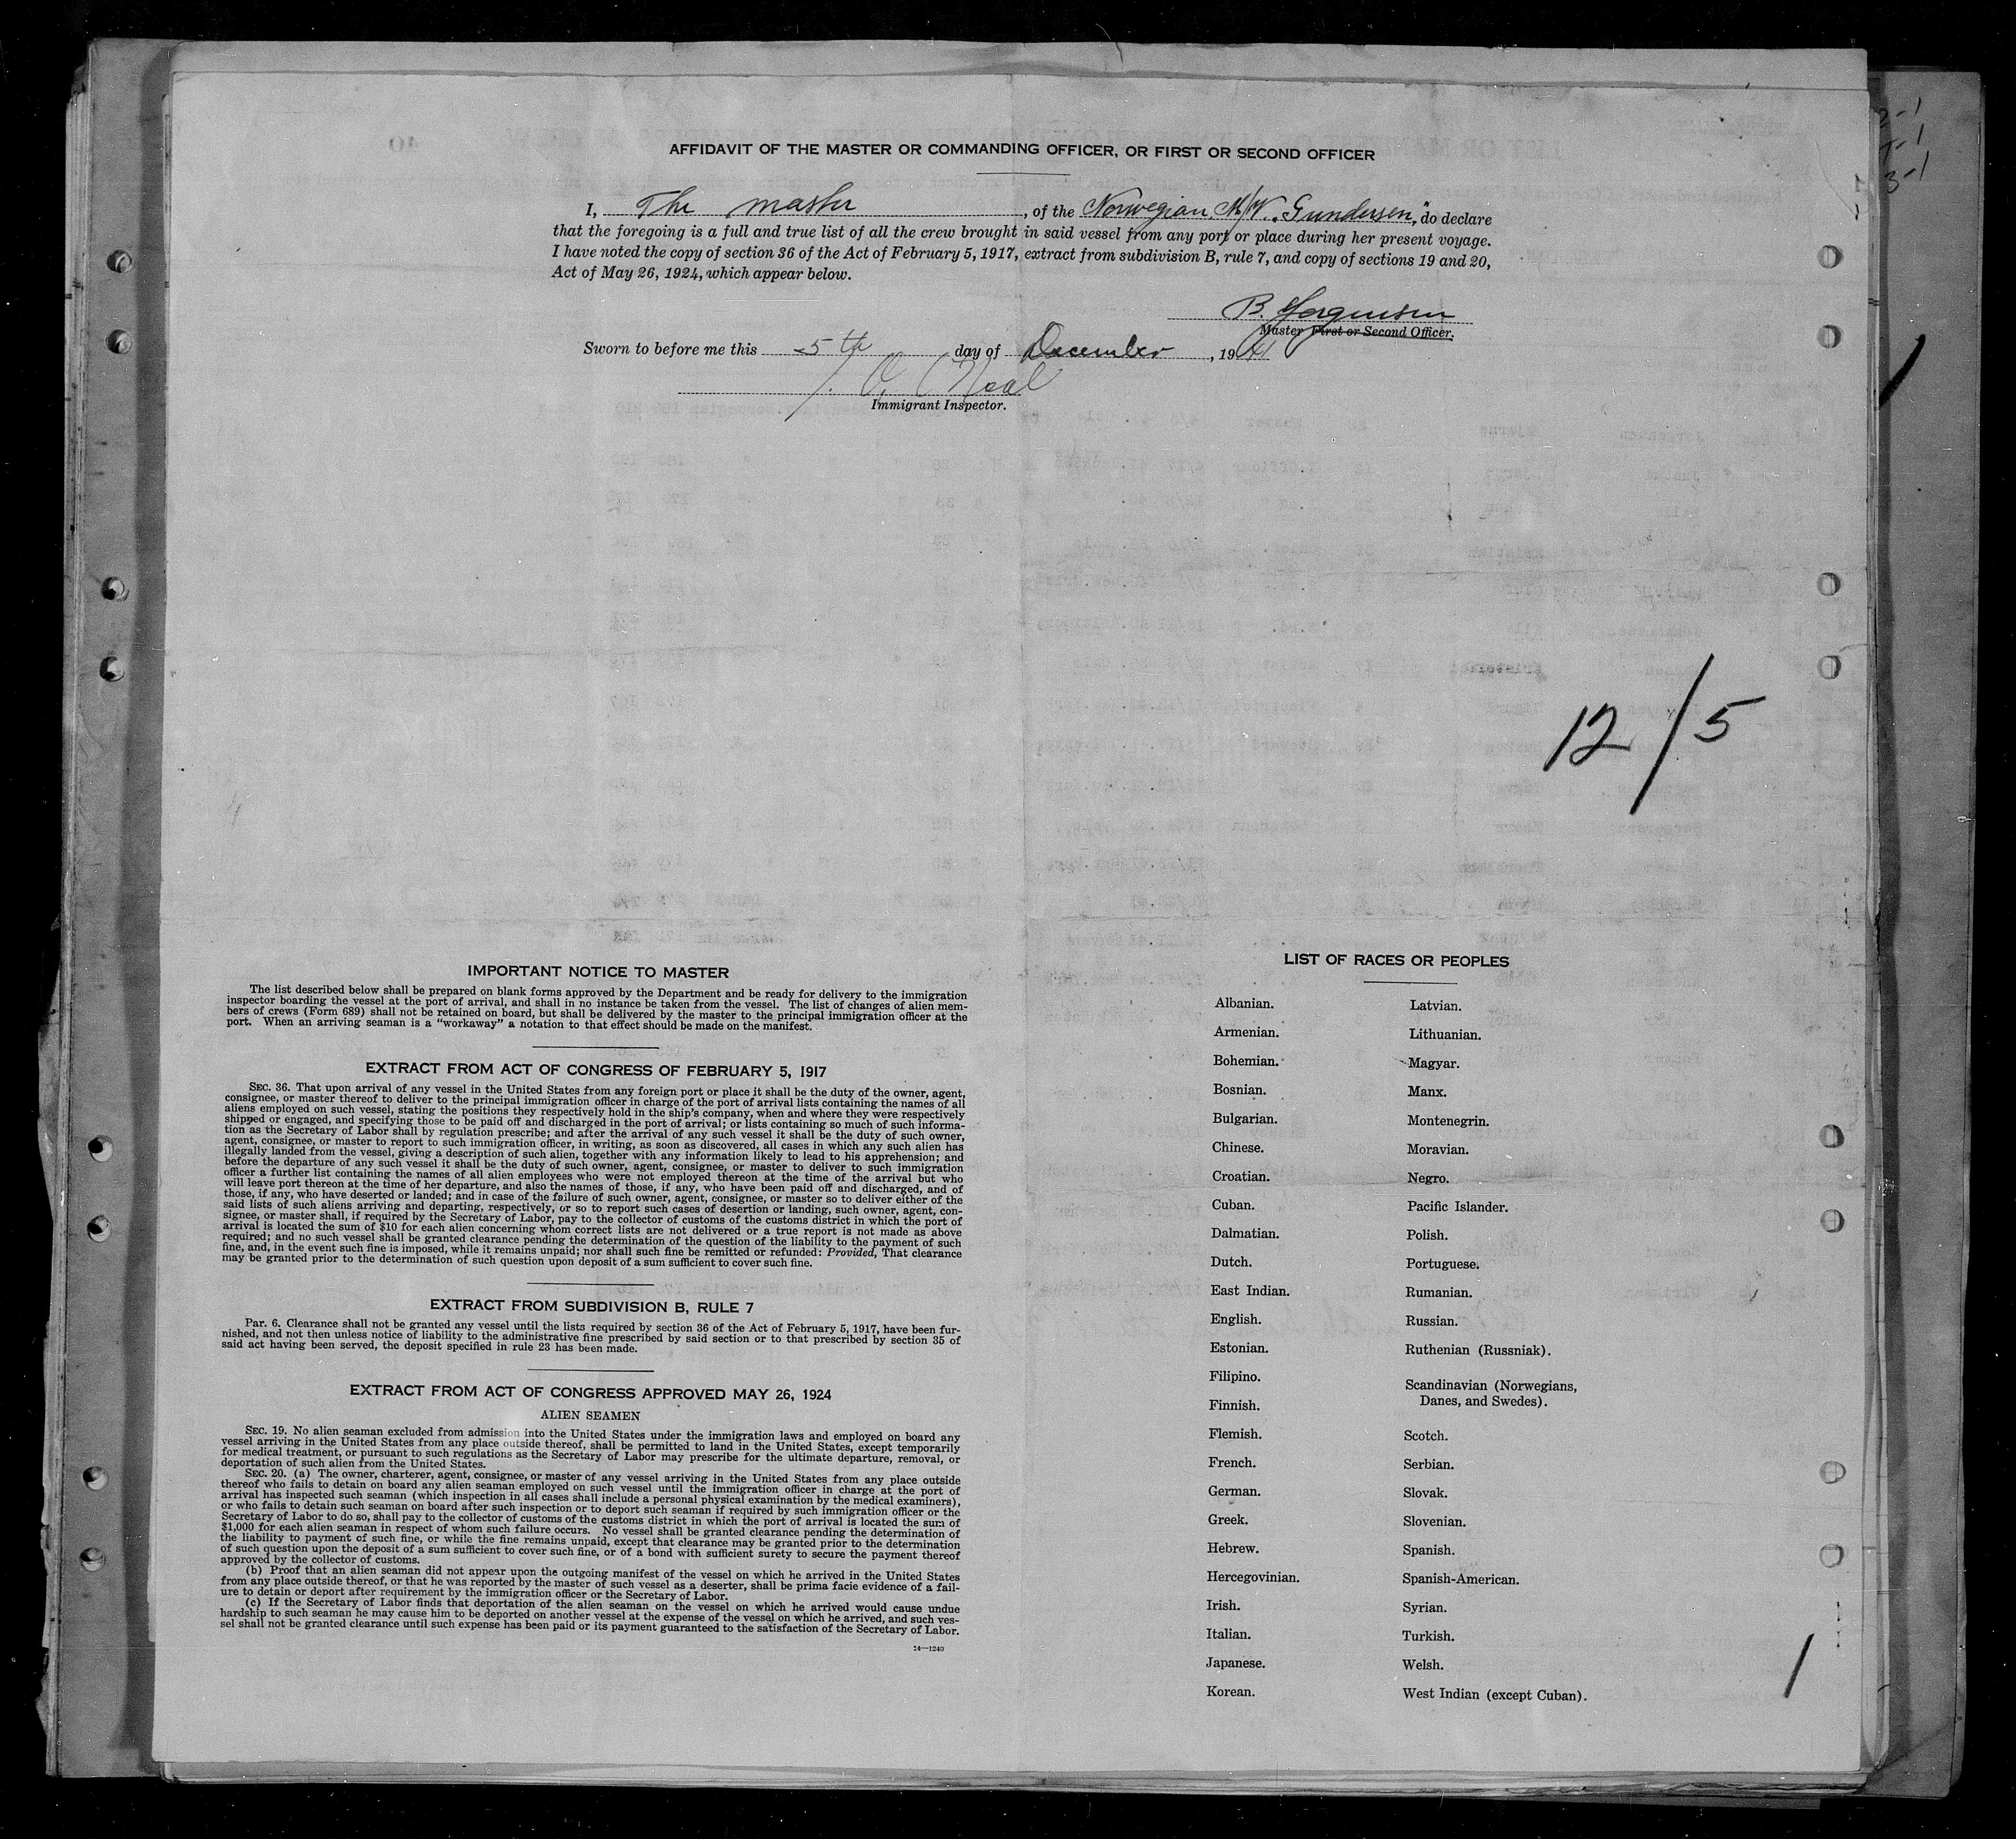 AFFIDAVIT OF THE MASTER OR COMMANDING OFFICER, OR FIRST OR SECOND OFFICER
I, The master, of the Norwegian M/V. Gundersen, do declare
that the foregoing is a full and true list of all the crew brought in said vessel from any port or place during her present voyage.
I have noted the copy of section 36 of the Act of February 5, 1917, extract from subdivision B, rule 7, and copy of sections 19 and 20,
Act of May 26, 1924, which appear below.
B. Jorgensen
Master First or Second Officer.
Sworn to before me this 5th day of December, 1941
Immigrant Inspector.
12/5
IMPORTANT NOTICE TO MASTER
The list described below shall be prepared on blank forms approved by the Department and be ready for delivery to the immigration
inspector boarding the vessel at the port of arrival, and shall in no instance be taken from the vessel. The list of changes of alien mem-
bers of crews (Form 689) shall not be retained on board, but shall be delivered by the master to the principal immigration officer at the
port. When an arriving seaman is a "workaway" a notation to that effect should be made on the manifest.
EXTRACT FROM ACT OF CONGRESS OF FEBRUARY 5, 1917
SEC. 36. That upon arrival of any vessel in the United States from any foreign port or place it shall be the duty of the owner, agent,
consignee, or master thereof to deliver to the principal immigration officer in charge of the port of arrival lists containing the names of all
aliens employed on such vessel, stating the positions they respectively hold in the ship's company, when and where they were respectively
shipped or engaged, and specifying those to be paid off and discharged in the port of arrival; or lists containing so much of such informa-
tion as the Secretary of Labor shall by regulation prescribe; and after the arrival of any such vessel it shall be the duty of such owner,
agent, consignee, or master to report to such immigration officer, in writing, as soon as discovered, all cases in which any such alien has
illegally landed from the vessel, giving a description of such alien, together with any information likely to lead to his apprehension; and
before the departure of any such vessel it shall be the duty of such owner, agent, consignee, or master to deliver to such immigration
officer a further list containing the names of all alien employees who were not employed thereon at the time of the arrival but who
will leave port thereon at the time of her departure, and also the names of those, if any, who have been paid off and discharged, and of
those, if any, who have deserted or landed; and in case of the failure of such owner, agent, consignee, or master so to deliver either of the
said lists of such aliens arriving and departing, respectively, or so to report such cases of desertion or landing, such owner, agent, con-
signee, or master shall, if required by the Secretary of Labor, pay to the collector of customs of the customs district in which the port of
arrival is located the sum of $10 for each alien concerning whom correct lists are not delivered or a true report is not made as above
required; and no such vessel shall be granted clearance pending the determination of the question of the liability to the payment of such
fine, and, in the event such fine is imposed, while it remains unpaid; nor shall such fine be remitted or refunded: Provided, That clearance
may be granted prior to the determination of such question upon deposit of a sum sufficient to cover such fine.
EXTRACT FROM SUBDIVISION B, RULE 7
Par. 6. Clearance shall not be granted any vessel until the lists required by section 36 of the Act of February 5, 1917, have been fur-
nished, and not then unless notice of liability to the administrative fine prescribed by said section or to that prescribed by section 35 of
said act having been served, the deposit specified in rule 23 has been made.
EXTRACT FROM ACT OF CONGRESS APPROVED MAY 26, 1924
ALIEN SEAMEN
SEC. 19. No alien seaman excluded from admission into the United States under the immigration laws and employed on board any
vessel arriving in the United States from any place outside thereof, shall be permitted to land in the United States, except temporarily
for medical treatment, or pursuant to such regulations as the Secretary of Labor may prescribe for the ultimate departure, removal, or
deportation of such alien from the United States.
SEC. 20. (a) The owner, charterer, agent, consignee, or master of any vessel arriving in the United States from any place outside
thereof who fails to detain on board any alien seaman employed on such vessel until the immigration officer in charge at the port of
arrival has inspected such seaman (which inspection in all cases shall include a personal physical examination by the medical examiners),
or who fails to detain such seaman on board after such inspection or to deport such seaman if required by such immigration officer or the
Secretary of Labor to do so, shall pay to the collector of customs of the customs district in which the port of arrival is located the sum of
$1,000 for each alien seaman in respect of whom such failure occurs. No vessel shall be granted clearance pending the determination of
the liability to payment of such fine, or while the fine remains unpaid, except that clearance may be granted prior to the determination
of such question upon the deposit of a sum sufficient to cover such fine, or of a bond with sufficient surety to secure the payment thereof
approved by the collector of customs.
(b) Proof that an alien seaman did not appear upon the outgoing manifest of the vessel on which he arrived in the United States
from any place outside thereof, or that he was reported by the master of such vessel as a deserter, shall be prima facie evidence of a fail-
ure to detain or deport after requirement by the immigration officer or the Secretary of Labor.
(c) If the Secretary of Labor finds that deportation of the alien seaman on the vessel on which he arrived would cause undue
hardship to such seaman he may cause him to be deported on another vessel at the expense of the vessel on which he arrived, and such ves-
sel shall not be granted clearance until such expense has been paid or its payment guaranteed to the satisfaction of the Secretary of Labor.
14—1240
LIST OF RACES OR PEOPLES
Albanian.
Armenian.
Bohemian.
Bosnian.
Bulgarian.
Chinese.
Croatian.
Cuban.
Dalmatian.
Dutch.
East Indian.
English.
Estonian.
Filipino.
Finnish.
Flemish.
French.
German.
Greek.
Hebrew.
Hercegovinian.
Irish.
Italian.
Japanese.
Korean.
Latvian.
Lithuanian.
Magyar.
Manx.
Montenegrin.
Moravian.
Negro.
Pacific Islander.
Polish.
Portuguese.
Rumanian.
Russian.
Ruthenian (Russniak).
Scandinavian (Norwegians,
Danes, and Swedes).
Scotch.
Serbian.
Slovak.
Slovenian.
Spanish.
Spanish-American.
Syrian.
Turkish.
Welsh.
West Indian (except Cuban).